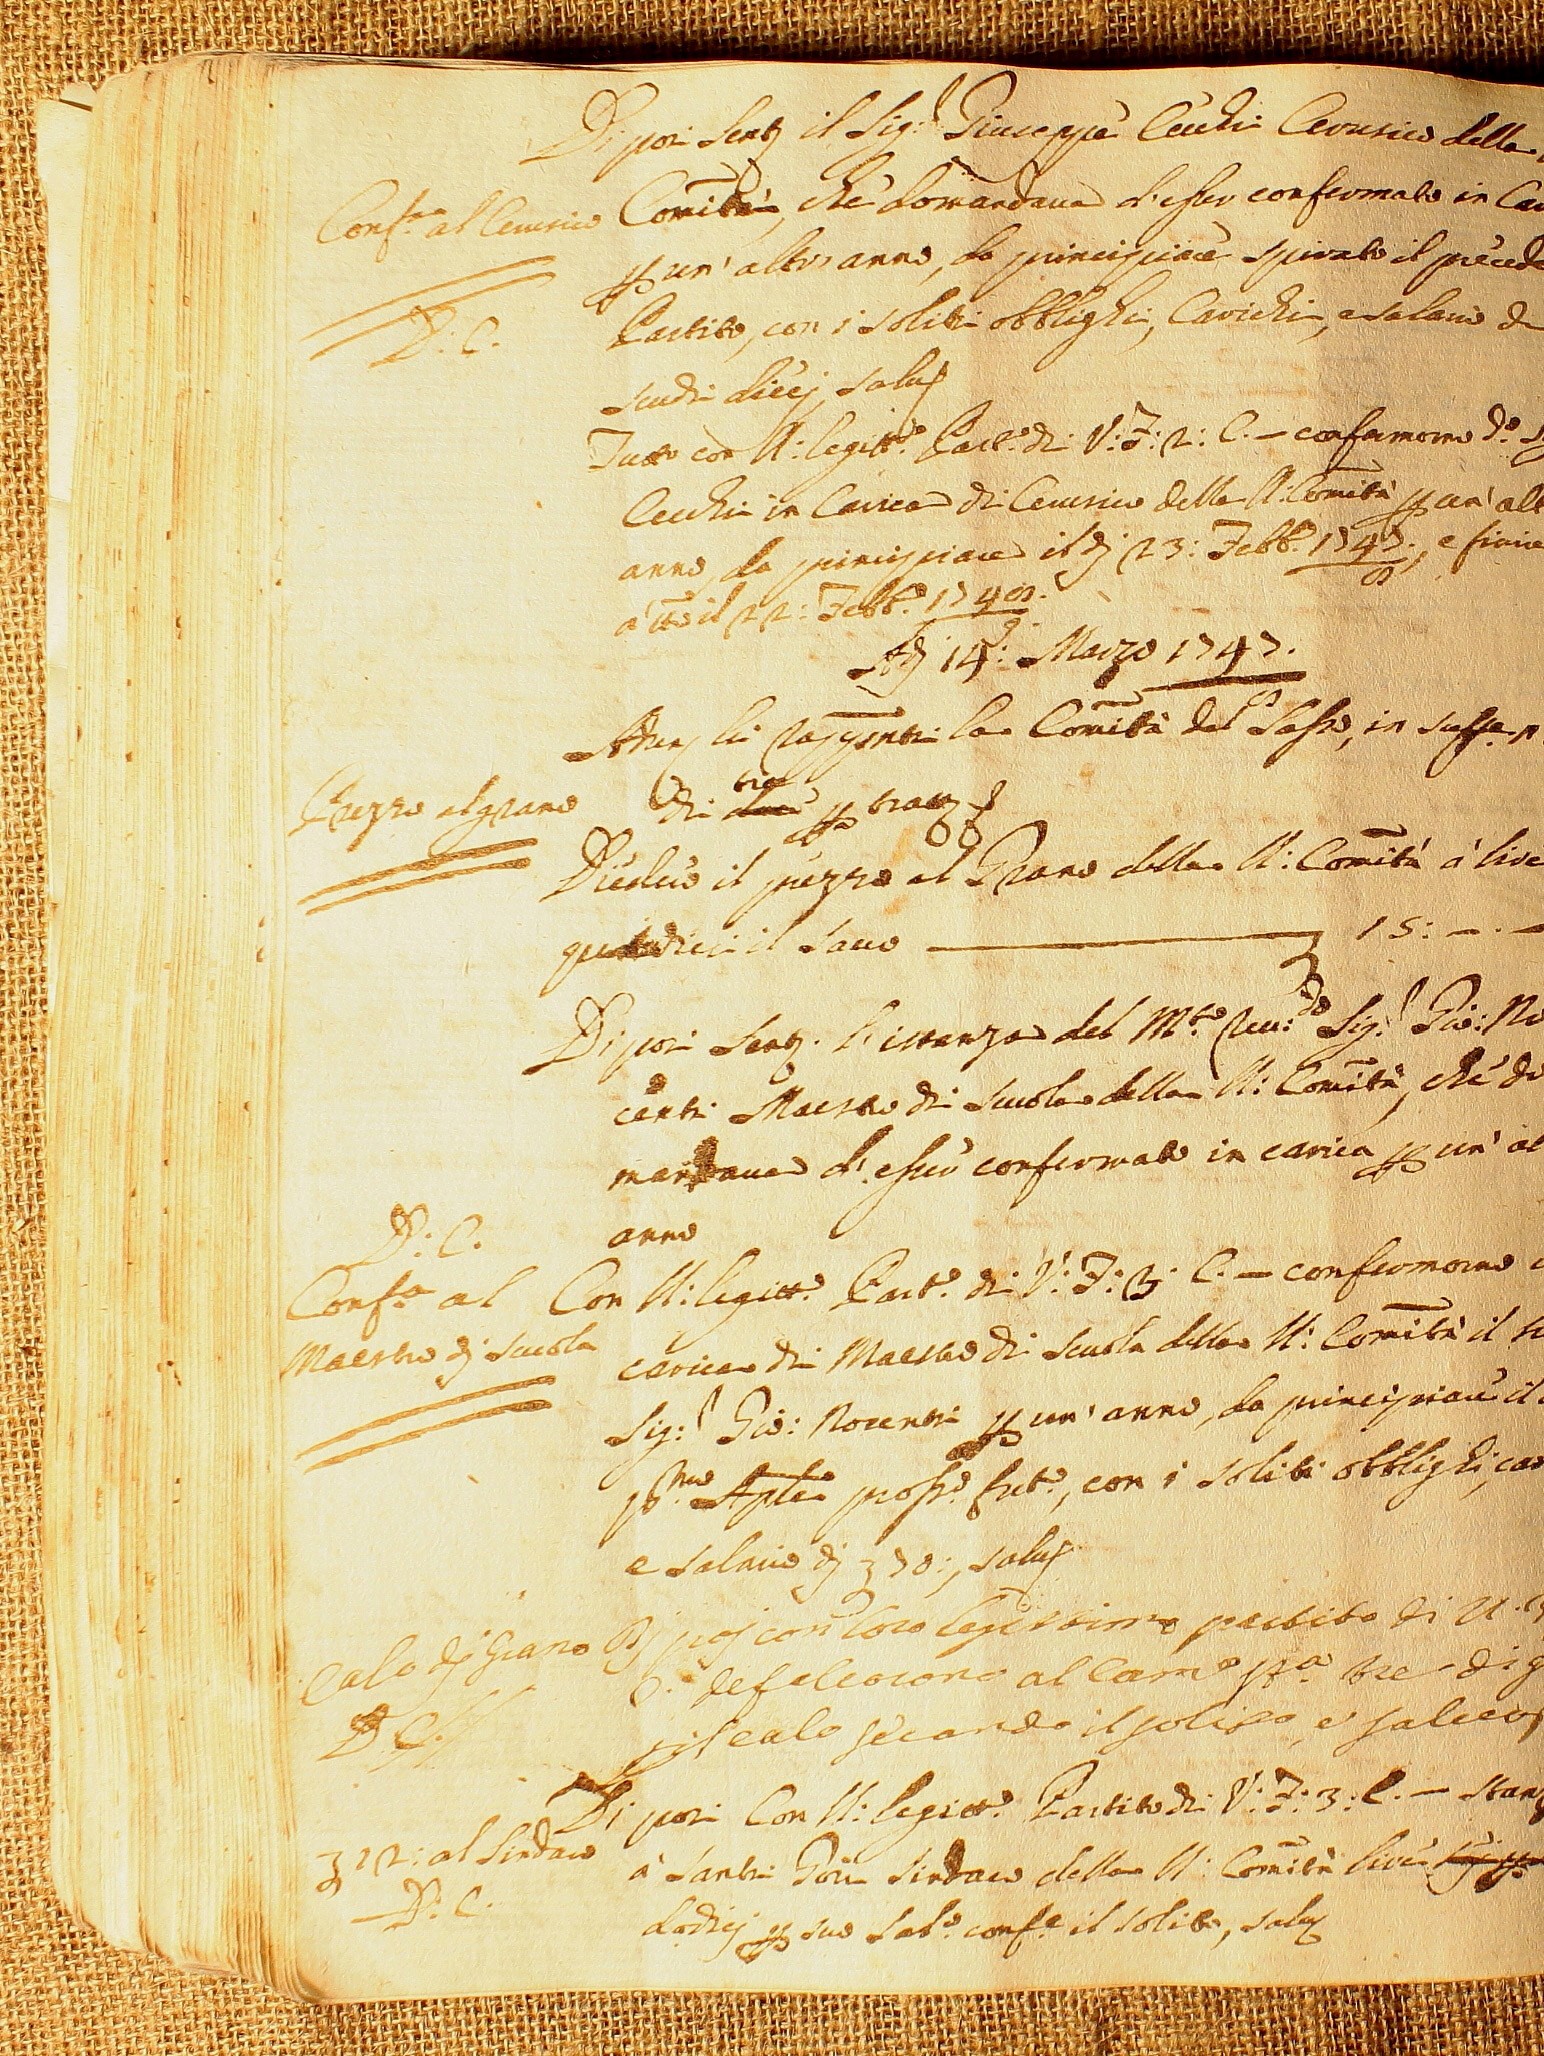 Di poi Sentj il Sig:r Giuseppe Cecchi Cerusico della
Conf:a al Cerusico
Comità, che domandava d'esser confermato in Car
p un' altro anno, da principiare spirato il precede
D: C.
Partito, con i soliti obblighi, Carichi, e salario d
scudi dieci, salvj
Tutto con U: legitt:o Part:o di V: F: 2: C. — confermorno d:o
Cecchi in Carica di Cerusico della U: Comità p un' alt
anno, da principiare il dj 23: Febb:o 1747:, e finire
a tto il 22: Febb:o 1748.
Adj 14: Marzo 1747.
Adunj li Rappnti la Comità del Sasso, in suff:e n:
di tre p trattj
Prezzo al grano
Diedero il prezzo al Grano della U: Comità à lire
quindici il Sacco — 15: — . —
Di poi Sentj. l'istanza del M:to Rev:do Sig:r Gio: No
centi Maestro di Scuola della U: Comità, che do
mandava d'esser confermato in carica p un' al
anno
D: C.
Conf:a al
Maestro dj Scuola
Con U: legitt:o Part:o di V: F: 3: C. — confermorno
carica di Maestro di Scuola della U: Comità il
Sig:r Gio: Nocenti p un' anno, da principiare il
p:mo Aple pross:o fut:o, con i soliti obblighi, car
e salario dj 70:, salvj
Calo dj Grano
Dj poj con loro legittimo partito di U.
6. defalcorono al Cam:o tre di g
p il calo secondo il solito, e salvo
D C.
Di poi Con U: legitt:o Partito di V: F: 3: C. — stanz
12: al Sindaco
à Santi Gori Sindaco della U: Comità lire
D: C.
dodicj p suo Sal:o conf:e il solito, salvj